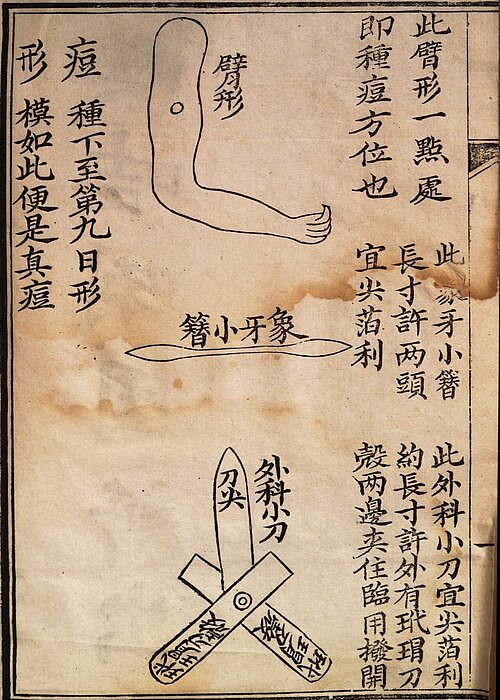 此臂形一點處
即種痘方位也
臂形
痘 種下至第九日形
形 模如此便是真痘
此象牙小簪
長寸許两頭
宜尖萡利
象牙小簪
此外科小刀宜尖萡利
約長寸許外有玳瑁刀
殼两邊夾住臨用撥開
外科小刀
刀尖
玳瑁刀殼